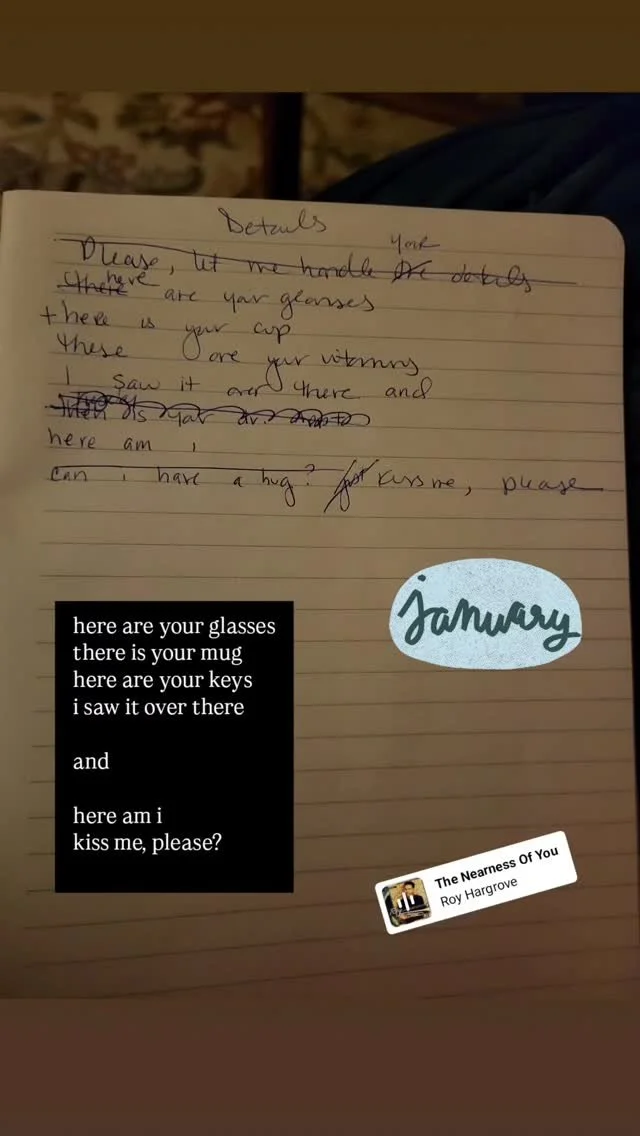 Details
your
Please, let me handle the details
there here are your glasses
+ here is your cup
these are your vitamins
I saw it over there and
is your
here am i
can i have a hug? just kiss me, please
january
here are your glasses
there is your mug
here are your keys
i saw it over there
and
here am i
kiss me, please?
The Nearness Of You
Roy Hargrove